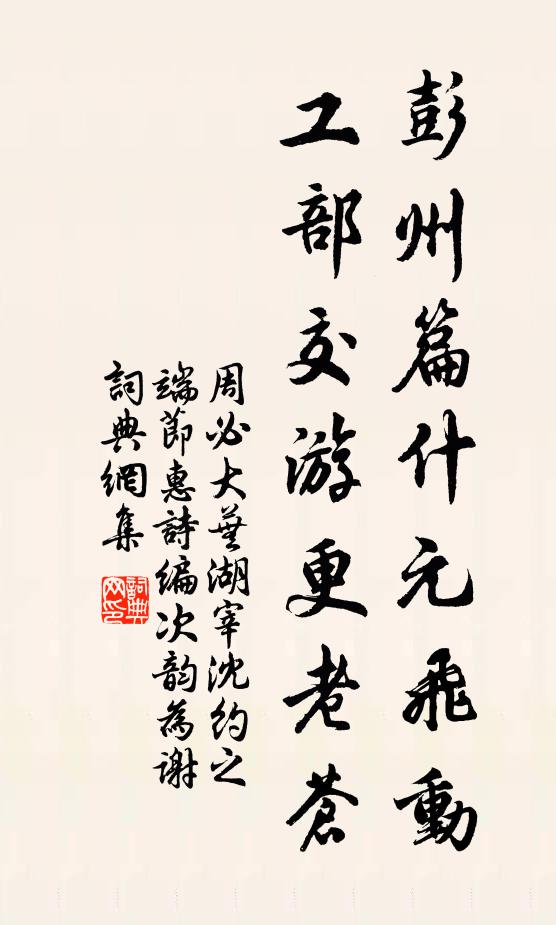 彭州篇什元飛動
工部交游更老蒼
周必大蕪湖宰沈約之
端節惠詩編次韵為謝
詞典網集
詞典
网印